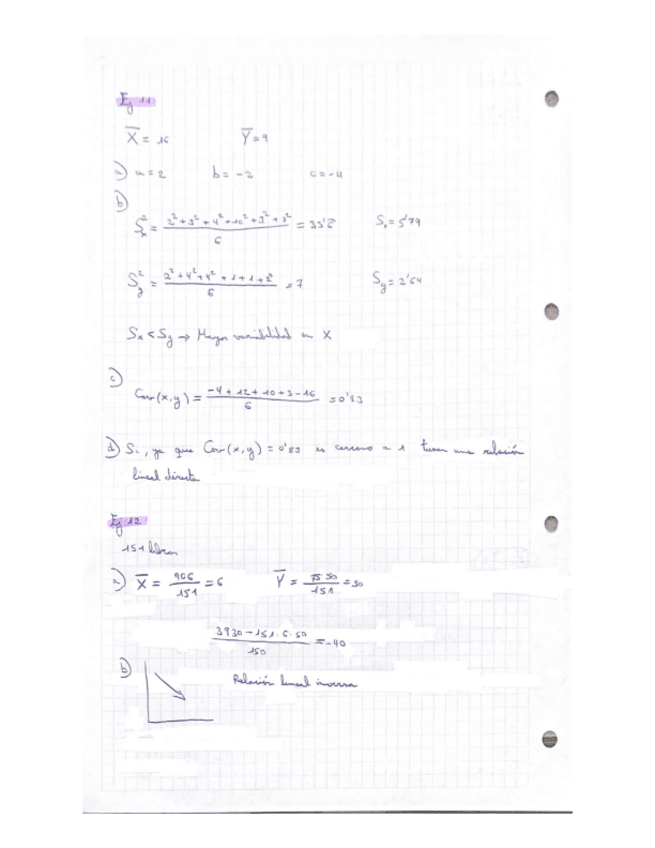 Ej 11
X̄ = 16 Ȳ = 9
a) a = 2 b = -2 c = -4
b)
S²x = (2² + 3² + 4² + 10² + 3² + 3²) / 6 = 33'6 Sx = 5'79
S²y = (2² + 4² + 4² + 1 + 1 + 2²) / 6 = 7 Sy = 2'64
Sx < Sy → Mayor variabilidad en X
c)
Cov(x,y) = (-4 + 12 + 10 + 3 - 16) / 6 = 0'83
d) Si, ya que Cov(x,y) = 0'83 es cercano a 1 tienen una relación
lineal directa
Ej 12
151 libros
a) X̄ = 906 / 151 = 6 Ȳ = 7550 / 151 = 50
(3930 - 151 · 6 · 50) / 150 = -40
b) Relación lineal inversa